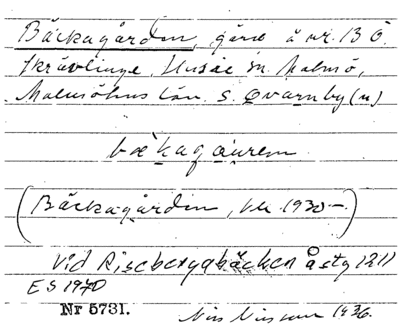 Bäckagården, gård å nr. 13 Ö.
Skrävlinge, Husie sn. Malmö,
Malmöhus län. S. Qvarnby (u)
(Bäckagården, kk. 1930-)
Vid Risebergabäcken Åstg 1211
ES 1970
Nr 5731.
Nils Nilsson 1936.